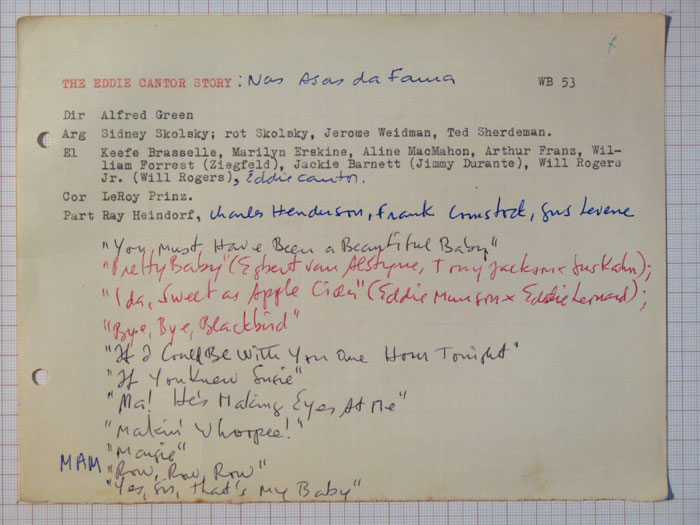 THE EDDIE CANTOR STORY : Nas Asas da Fama WB 53
Dir Alfred Green
Arg Sidney Skolsky; rot Skolsky, Jerome Weidman, Ted Sherdeman.
El Keefe Brasselle, Marilyn Erskine, Aline MacMahon, Arthur Franz, Wil-
liam Forrest (Ziegfeld), Jackie Barnett (Jimmy Durante), Will Rogers
Jr. (Will Rogers), Eddie Cantor.
Cor LeRoy Prinz.
Part Ray Heindorf, Charles Henderson, Frank Comstock, Gus Levene
"You, Must Have Been a Beautiful Baby"
"Pretty Baby" (Egbert van Alstyne, Tony Jackson e Gus Kahn);
"Ida, Sweet as Apple Cider" (Eddie Munson x Eddie Leonard);
"Bye, Bye, Blackbird"
"If I Could Be With You One Hour Tonight"
"If You Knew Susie"
"Ma! He's Making Eyes At Me"
"Makin' Whoopee!"
"Margie"
MAM "Row, Row, Row"
"Yes, Sir, that's My Baby"